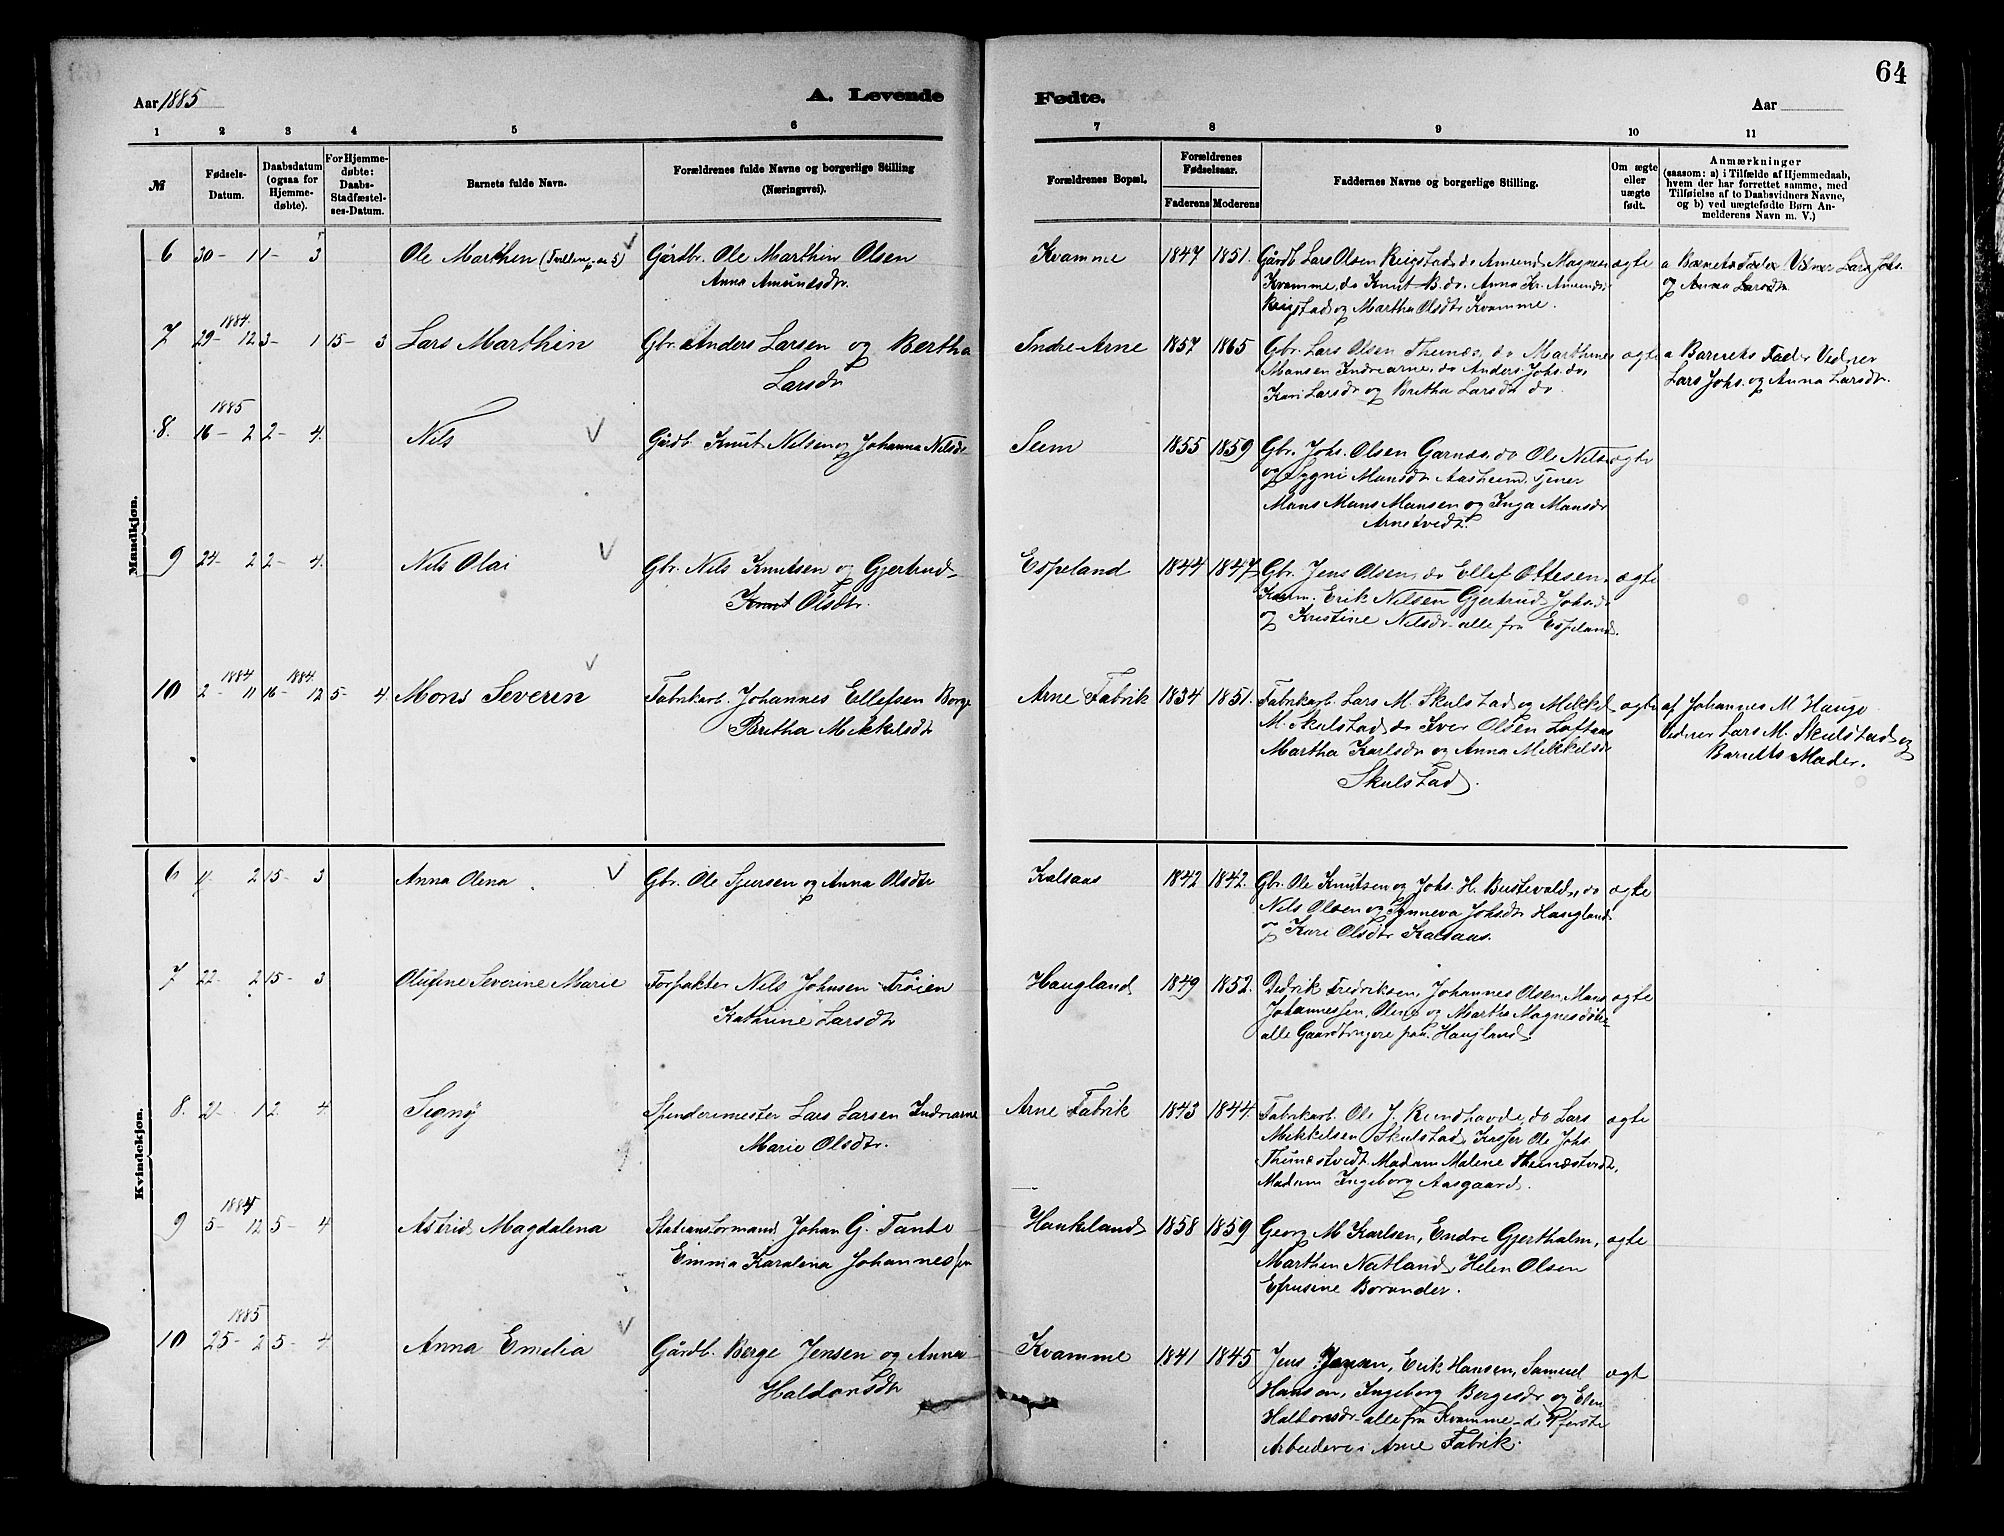 64
Aar 1885
A. Levende
Fødte.
Aar
1 2 3 4 5 6 7 8 9 10 11
№
Fødsels-
Datum.
Daabsdatum
(ogsaa for
Hjemme-
døbte).
For Hjemme-
døbte:
Daabs-
Stadfæstel-
ses-Datum.
Barnets fulde Navn.
Forældrenes fulde Navne og borgerlige Stilling
(Næringsvei).
Forældrenes Bopæl.
Forældrenes
Fødselsaar.
Faderens Moderens
Faddernes Navne og borgerlige Stilling.
Om ægte
eller
uægte
født.
Anmærkninger
(saasom: a) i Tilfælde af Hjemmedaab,
hvem der har forrettet samme, med
Tilføielse af to Daabsvidners Navne,
og b) ved uægtefødte Børn An-
melderens Navn m. V.)
Mandkjøn.
6 30- 1 1- 3 Ole Marthin
Gårdbr. Ole Marthin Olsen
Anna Amundsdtr.
Kvamme 1847 1851.
Gårdb Lars Olsen Reigstad, do Amund Magnes ægte
Kvamme, do Knut B. do. Anna Kr. Amunds.
Reigstad og Martha Olsdtr Kvamme.
a Barnets Fader Vidner Lars Johs.
og Anna Larsdtr.
1884.
7 29- 12 3- 1 15- 3 Lars Marthin
Gbr. Anders Larsen og Bertha
Larsdtr
Indre-Arne 1857 1865
Gbr. Lars Olsen Thunes, do Marthines ægte
Mansen Indrearne, do Anders Johs. do,
Kari Larsdtr og Britha Larsdtr do.
a Barnets Fader Vidner
Lars Johs. og Anna Larsdtr.
1885
8. 16- 2 2- 4. Nils
Gårdb. Knut Nilsen og Johanna Nilsdtr
Seim 1855 1859
Gbr. Johs. Olsen Garnæs, do Ole Nilsen ægte
og Sygni Mansdtr Aasheim, Tjener
Mans Mans Mansen og Inga Mansdtr
Arnetvedt.
9 24- 2 2- 4. Nils Olai
Gbr. Nils Knutsen og Gjertrud
Knut Olsdtr.
Espeland 1844 1847
Gbr. Jens Olsen, do Ellef Ottesen, ægte
Erik Nilsen Gjertrud Johs. do
og Kristine Nilsdr alle fra Espeland.
1884 1884.
10 2- 11 16- 12 5- 4. Mons Severin
Fabrikarb. Johannes Ellefsen Borge
Britha Mikkelsdtr
Arne Fabrik 1834 1851.
Fabrikarb. Lars M. Skulstad og Mikkel ægte
M. Skulstad, do Iver Olsen Loftaas
Martha Karlsdr og Anna Mikkelsdr
Skulstad.
af Johannes M Hauge
Vidner Lars M. Skulstad og
Barnets Moder.
Kvindekjøn.
6 4- 2 15- 3 Anna Olena
Gbr. Ole Sjursen og Anna Olsdtr
Kalsaas 1842 1842.
Gbr. Ole Knutsen og Johs. H. Bustevold, do ægte
Nils Olsen og Synneva Johsdtr Haugland
og Kari Olsdtr Kalsaas.
7 22- 2 15- 3 Olufine Severine Marie
Forpakter Nils Johnsen Trøien
Kathrine Larsdtr
Haugland 1849 1852.
Didrik Fredriksen, Johannes Olsen Mans ægte
Johannessen, Olena og Martha Magnesdøtre
alle Gaardbrugere paa Haugland.
8. 21- 1 2- 4. Signÿ
Spinderimester Lars Larsen Indrearne
Marie Olsdtr.
Arne Fabrik 1843 1844.
Fabrikarb. Ole J. Rundhovde, do Lars ægte
Mikkelsen Skulstad, Kasser Ole Johs.
Thunestvedt Madam Malene Thunestvedt,
Madam Ingeborg Aasgaard.
1884
9 5- 12 5- 4 Astrid Magdalena
Stationsformand Johan G. Tande
Emma Karolina Johannessen
Haukeland 1858 1859
Georg M Karlsen, Endre Gjertholm, ægte
Marthin Natland, Helen Olsen
Efrusine Borander.
1885
10 25- 2 5- 4. Anna Emelia
Gårdb. Berge Jensen og Anna
Haldorsdtr
Kvamme 1841 1845
Jens Jensen, Erik Hansen, Samuel ægt
Hansen, Ingeborg Bergesdr og Elen
Haldorsdr alle fra Kvamme de 4 første
Arbeidere i Arne Fabrik.